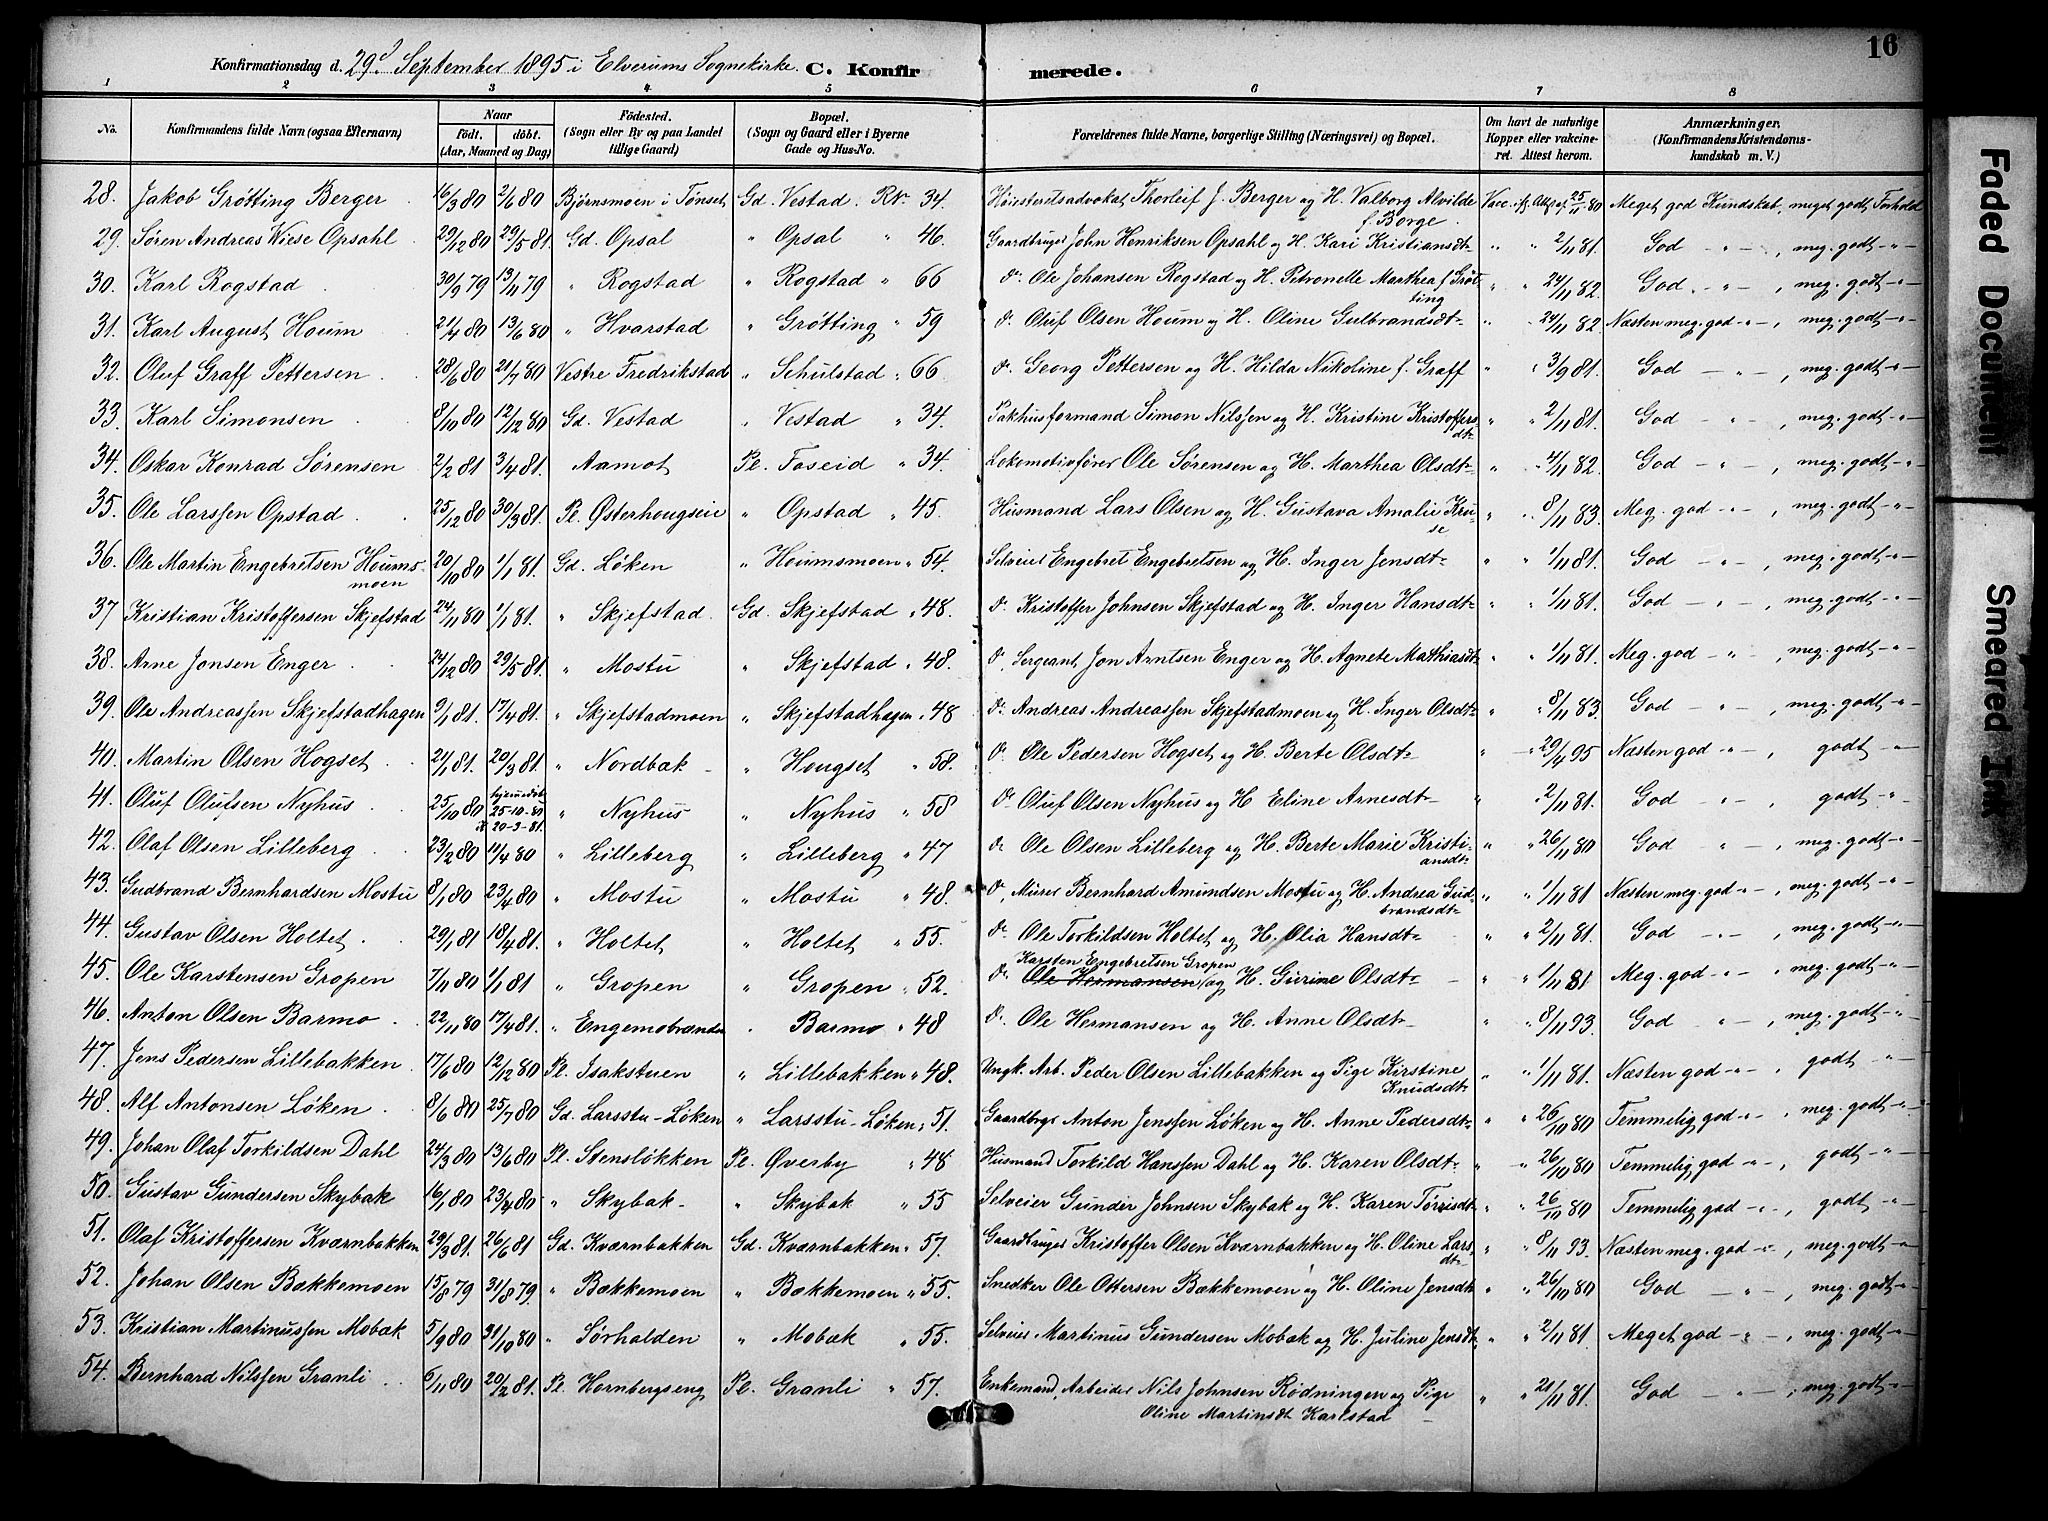 16
Konfirmationsdag d. 29d September 1895 i Elverums Sognekirke. C. Konfirmerede.
1 2 3 4 5 6 7 8
No. Konfirmandens fulde Navn (ogsaa Efternavn) Naar født. døbt. (Aar, Maaned og Dag) Fødested. (Sogn eller By og paa Landet tillige Gaard) Bopæl. (Sogn og Gaard eller i Byerne Gade og Hus-No. Forældrenes fulde Navne, borgerlige Stilling (Næringsvei) og Bopæl. Om havt de naturlige Kopper eller vakcineret. Attest herom. Anmærkninger. (Konfirmandens Kristendomskundskab m. V.)
28. Jakob Grøtting Berger 16/3 80 2/6 80 Bjørnsmoen i Tønset Gd. Vestad. RN. 34. Høiesteretsadvokat Thorleif J. Berger og H. Valborg Alvilde f. Borge Vacc. 25/11 80 Meget god Kundskab, meget godt Forhold
29. Søren Andreas Wiese Opsahl 29/12 80 29/5 81. Gd. Opsal " Opsal " 46. Gaardbruger John Henriksen Opsahl og H. Kari Kristiansdt " " 2/11 81. God - " - , meg. godt - " -
30. Karl Rogstad 30/9 79 13/11 79 " Rogstad " Rogstad " 66 do Ole Johansen Rogstad og H. Petronelle Marthea f. Grøtting " " 24/11 82. God - " - , meg. godt - " -
31. Karl August Houm 21/4 80 13/6 80 " Hvarstad " Grøtting " 59 do Oluf Olsen Houm og H. Oline Gulbrandsdt " 24/11 82 Næsten meg. god - " - , meg. godt - " -
32. Oluf Graff Pettersen 28/6 80 21/7 80 Vestre Fredrikstad " Schulstad " 66. do Georg Pettersen og H. Hilda Nikoline f. Graff " " 3/9 81. God - " - , meg. godt - " -
33. Karl Simonsen 8/10 80 12/12 80 Gd. Vestad " Vestad " 34. Pakhusformand Simon Nilssen og H. Kristine Kristoffersdt " " 2/11 81. God - " - , meg. godt - " -
34. Oskar Konrad Sørensen 2/2 81 3/4 81. Aamot Pl. Foseid " 34. Lokomotivfører Ole Sørensen og H. Marthea Olsdt " " 4/11 82. God - " - , meg. godt - " -
35. Ole Larssen Opstad 25/12 80 30/3 81. Pl. Østerhougseie " Opstad " 45. Husmand Lars Olsen og H. Gustava Amalie Kruse " " 8/11 83. Meg. god - " - , meg. godt - " -
36. Ole Martin Engebretsen Houmsmoen 20/10 80 1/1 81. Gd. Løken " Houmsmoen " 54. Selveier Engebret Engebretsen og H. Inger Jensdt " " 1/11 81. God - " - , meg. godt - " -
37 Kristian Kristoffersen Skjefstad 24/11 80 1/1 81. " Skjefstad. Gd. Skjefstad " 48. do Kristoffer Johnsen Skjefstad og H. Inger Hansdt " " 1/11 81. God - " - , meg. godt - " -
38. Arne Jonsen Enger 24/12 80 29/5 81. " Mostu " Skjefstad " 48. do, Sergeant Jon Arntsen Enger og H. Agnete Mathiasdt " " 1/11 81. Meg. god - " - , meg. godt - " -
39. Ole Andreassen Skjefstadhagen 9/1 81. 17/4 81. " Skjefstadmoen " Skjefstadhagen " 48 do Andreas Andreassen Skjefstadmoen og H. Inger Olsdt " " 8/11 83. God - " - , meg. godt - " -
40. Martin Olsen Hogset 24/1 81. 20/3 81. " Nordbak " Hougset " 58. do Ole Pedersen Hogset og H. Berte Olsdt " " 29/4 95 Næsten god - " - , godt - " -
41. Oluf Olufsen Nyhus 25/10 80 hjemmedøbt 25-10-80 20-3-81. " Nyhus " Nyhus " 58 do Oluf Olsen Nyhus og H Eline Arnesdt " " 2/11 81. God - " - , godt - " -
42. Olaf Olsen Lilleberg 23/2 80 11/4 80 " Lilleberg " Lilleberg " 47 do Ole Olsen Lilleberg og H. Berte Marie Kristiansdt " " 26/11 80 God - " - , meg. godt - " -
43. Gudbrand Bernhardsen Mostu 8/1 80 23/4 80 " Mostu " Mostu " 48. do, Murer Bernhard Amundsen Mostu og H. Andrea Gudbrandsdt " " 1/11 81 Næsten meg. god - " - , meg. godt - " -
44. Gustav Olsen Holtet 29/1 81 18/4 81. " Holtet " Holtet " 55. do Ole Torkildsen Holtet og H. Olia Hansdt " " 2/11 81. God - " - , meg. godt - " -
45. Ole Karstensen Gropen 7/11 80 1/1 81 " Gropen " Gropen " 52. do Karsten Engebretsen Gropen Ole Hermansen og H. Gurine Olsdt " " 1/11 81 Meg. god - " - , meg. godt - " -
46. Anton Olsen Barmo 22/11 80 17/4 81. " Engemobrænden " Barmo " 48 do Ole Hermansen og H. Anne Olsdt " " 8/11 93. God - " - , meg. godt - " -
47. Jens Pedersen Lillebakken 17/6 80 12/12 80 Pl. Isakstuen " Lillebakken " 48. Ungk. Arb. Peder Olsen Lillebakken og Pige Kirstine Knudsdt " " 1/11 81. Næsten god - " - , godt - " -
48. Alf Antonsen Løken 8/6 80 25/7 80 Gd. Larsstu-Løken " Larsstu-Løken " 51. Gaardbrgr Anton Jenssen Løken og H. Anne Pedersdt " " 26/10 80 Temmelig god - " - , meg. godt - " -
49. Johan Olaf Torkildsen Dahl 24/3 80 13/6 80 Pl. Stensløkken Pl. Øverby " 48 Husmand Torkild Hanssen Dahl og H. Karen Olsdt " " 26/10 80 Temmelig god - " - , godt - " -
50. Gustav Gundersen Skybak 16/1 80 23/4 80 " Skybak " Skybak " 55 Selveier Gunder Johnsen Skybak og H. Karen Tørrisdt " " 26/10 80 Temmelig god - " - , godt - " -
51. Olaf Kristoffersen Kværnbakken 29/3 81. 26/6 81 Gd. Kværnbakken Gd. Kværnbakken " 57. Gaardbruger Kristoffer Olsen Kværnbakken og H. Oline Larsdt " " 8/11 93. Næsten meg. god - " - , meg. godt - " -
52. Johan Olsen Bækkemoen 15/8 79 31/8 79. " Bækkemoen " Bækkemoen " 55. Snedker Ole Ottersen Bækkemoen og H. Oline Jensdt " " 26/10 80 God - " - , meg. godt - " -
53. Kristian Martinussen Mobæk 5/9 80 31/10 80 " Sørhalden " Mobæk " 55. Selveier Martinus Gundersen Mobæk og H. Juline Jensdt " " 2/11 81. Meget god - " - , meg. godt - " -
54. Bernhard Nilssen Granli 6/11 80 20/2 81. Pl. Hornbergseng Pl. Granli " 57. Enkemand, Arbeider Nils Johnsen Rødningen og Pige Oline Martinsdt Karlstad " " 21/11 81. God - " - , meg. godt - " -
Faded Document
Smeared Ink